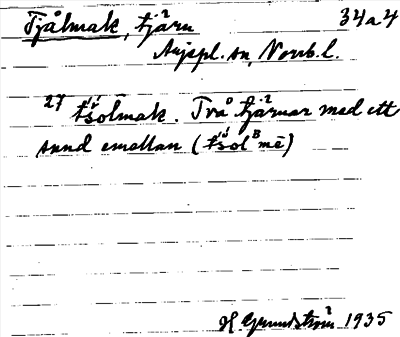 Tjålmak, tjärn 34a4
Arjepl. sn, Norrb. l.
27 tšólmak. Två tjärnar med ett
sund emellan (tšólᴮmē)
H. Grundström 1935